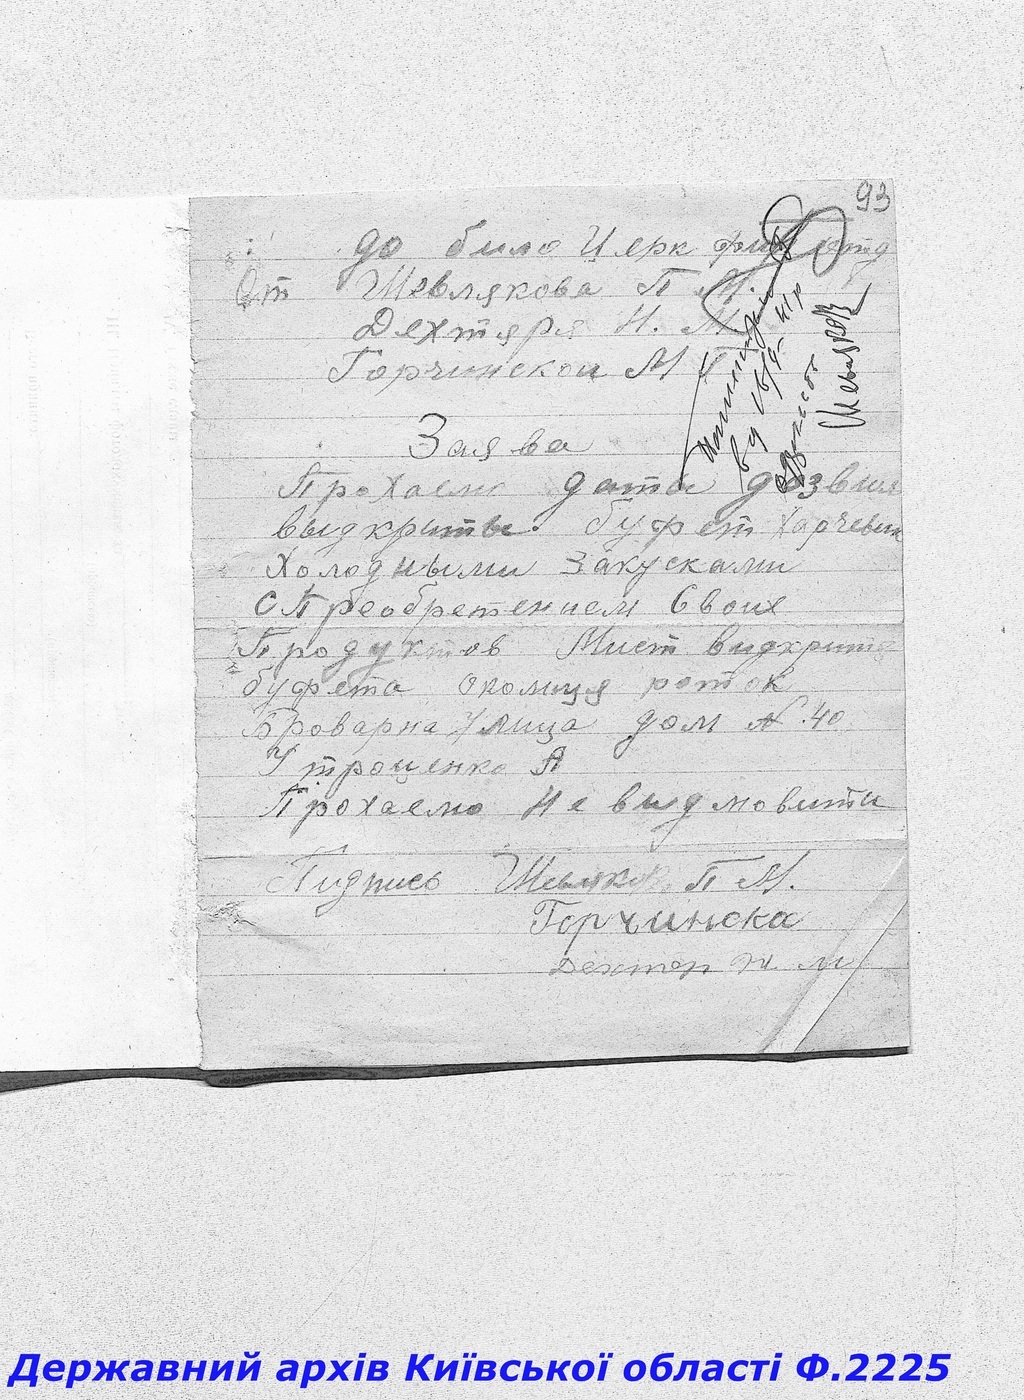 93
до било Церк фин отд
От Шевлякова П М.
Дехтяря Н. М
Горчинской М Г
Заява
Прохаемо дати дозвил
выдкриты буфет Харчевик
Холодными Закусками
С Преобретением Своих
Продуктов Мист видкрит
буфета околиця роток
Броварна Улица дом N 40
У троценко А
Прохаемо Не видмовити
Пидпись Шевляков П М.
Горчинска
Дехтяр Н. М
Шевляков
Державний архів Київської області Ф.2225